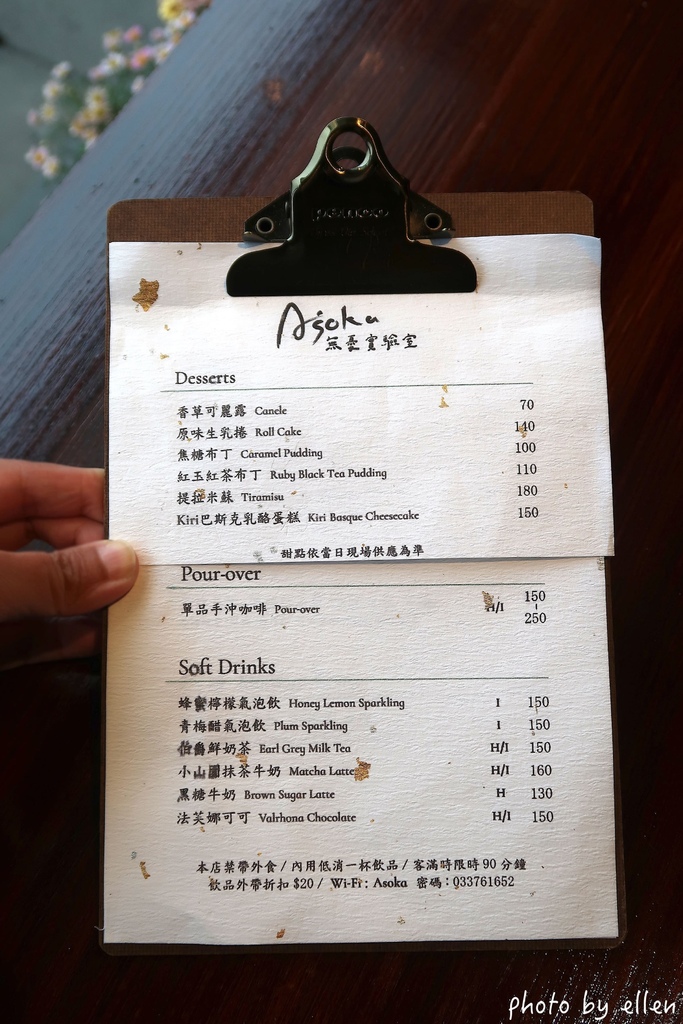 Asoka
無憂實驗室
Desserts
香草可麗露 Canele 70
原味生乳捲 Roll Cake 140
焦糖布丁 Caramel Pudding 100
紅玉紅茶布丁 Ruby Black Tea Pudding 110
提拉米蘇 Tiramisu 180
Kiri巴斯克乳酪蛋糕 Kiri Basque Cheesecake 150
甜點依當日現場供應為準
Pour-over
單品手沖咖啡 Pour-over H/I 150 - 250
Soft Drinks
蜂蜜檸檬氣泡飲 Honey Lemon Sparkling I 150
青梅醋氣泡飲 Plum Sparkling I 150
伯爵鮮奶茶 Earl Grey Milk Tea H/I 150
小山園抹茶牛奶 Matcha Latte H/I 160
黑糖牛奶 Brown Sugar Latte H 130
法芙娜可可 Valrhona Chocolate H/I 150
本店禁帶外食 / 內用低消一杯飲品 / 客滿時限時 90 分鐘
飲品外帶折扣 $20 / Wi-Fi: Asoka 密碼：033761652
photo by ellen